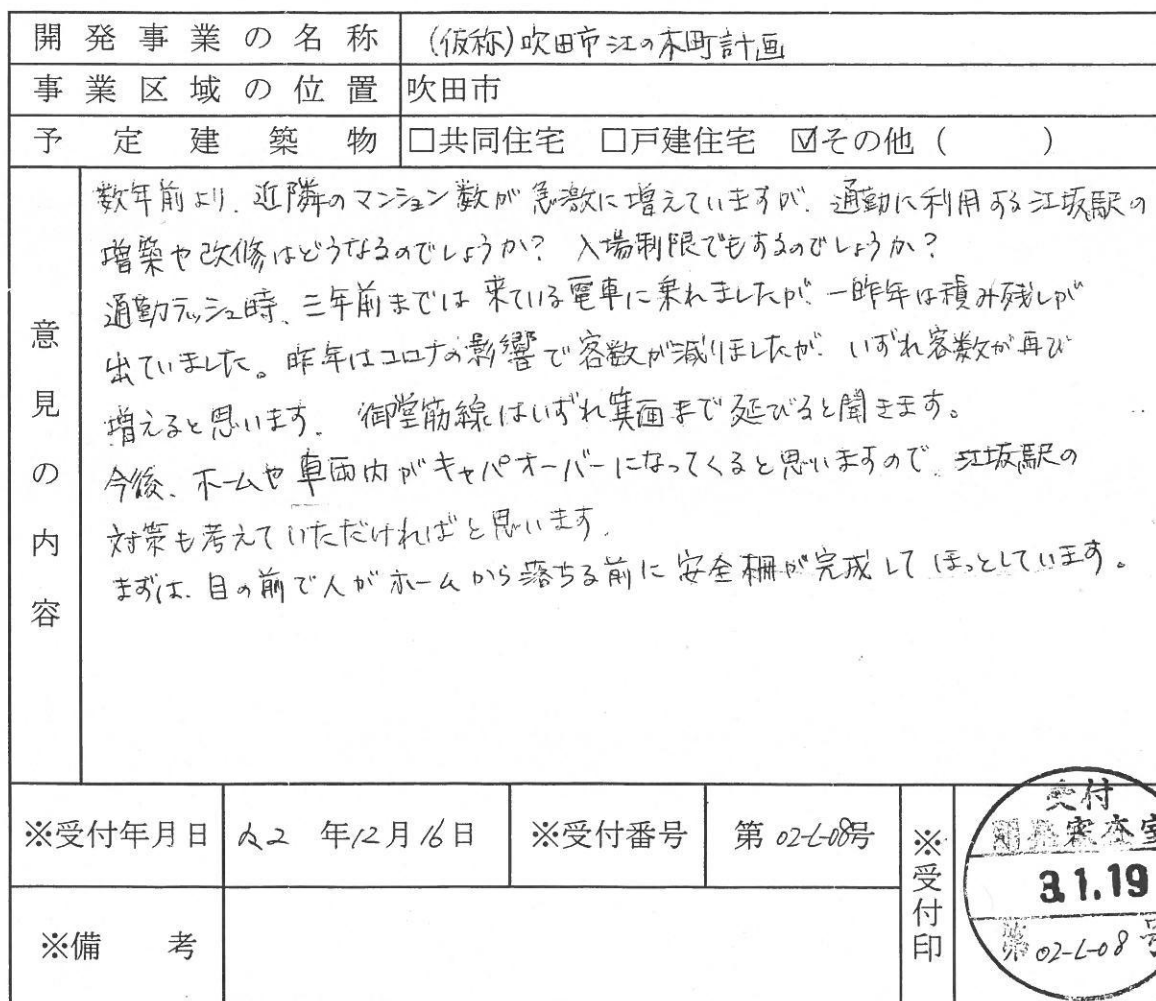 開発事業の名称 (仮称)吹田市江の木町計画
事業区域の位置 吹田市
予定建築物 □共同住宅 □戸建住宅 ☑その他( )
意見の内容
数年前より、近隣のマンション数が急激に増えていますが、通勤に利用する江坂駅の
増築や改修はどうなるのでしょうか? 入場制限でもするのでしょうか?
通勤ラッシュ時、三年前までは来ている電車に乗れましたが、一昨年は積み残しが
出ていました。昨年はコロナの影響で客数が減りましたが、いずれ客数が再び
増えると思います。御堂筋線はいずれ箕面まで延びると聞きます。
今後、ホームや車両内がキャパオーバーになってくると思いますので、江坂駅の
対策も考えていただければと思います。
まずは、目の前で人がホームから落ちる前に安全柵が完成してほっとしています。
※受付年月日 2年12月16日 ※受付番号 第02-L-08号 ※受付印
受付
審査室
3.1.19
第02-L-08号
※備考